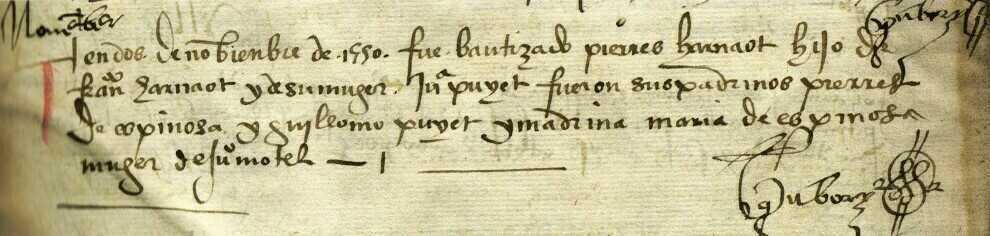 Novienber
en dos de nobienbre de .1550. fue bautizado pierres harnaot hijo de
harnaot y de su muger. Juª puyet fueron sus padrinos pierres
de espinosa y guillomo puyet y madrina maria de espinosa
muger de juº motel — 1